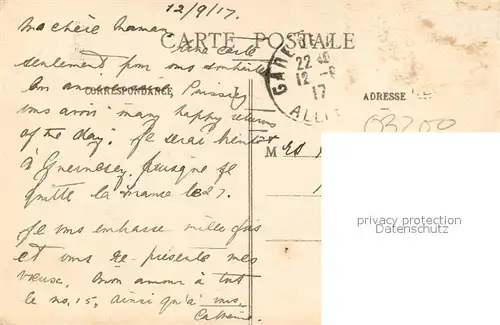 12/9/17.
Ma chère Maman
Une carte
CARTE POSTALE
seulement pour vous souhaiter
bon anniversaire, Puissiez
CORRESPONDANCE
vous avoir "many happy returns
of the day". Je serai bientôt
à Guernesey, puisque je
quitte la France le 27.
Je vous embrasse mille fois
et vous re-présente mes
vœux. Mon amour à tout
le no. 15, ainsi qu'à vous.
GARE
22
12-9
17
ALLI
ADRESSE
M
privacy protection
Datenschutz